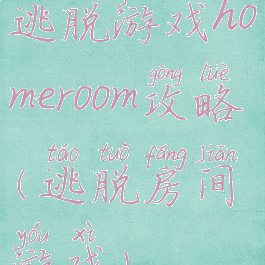 逃脱游戏ho
gōng lüè
meroom攻略
táo tuō fáng jiān
(逃脱房间
yóu xì
游戏)